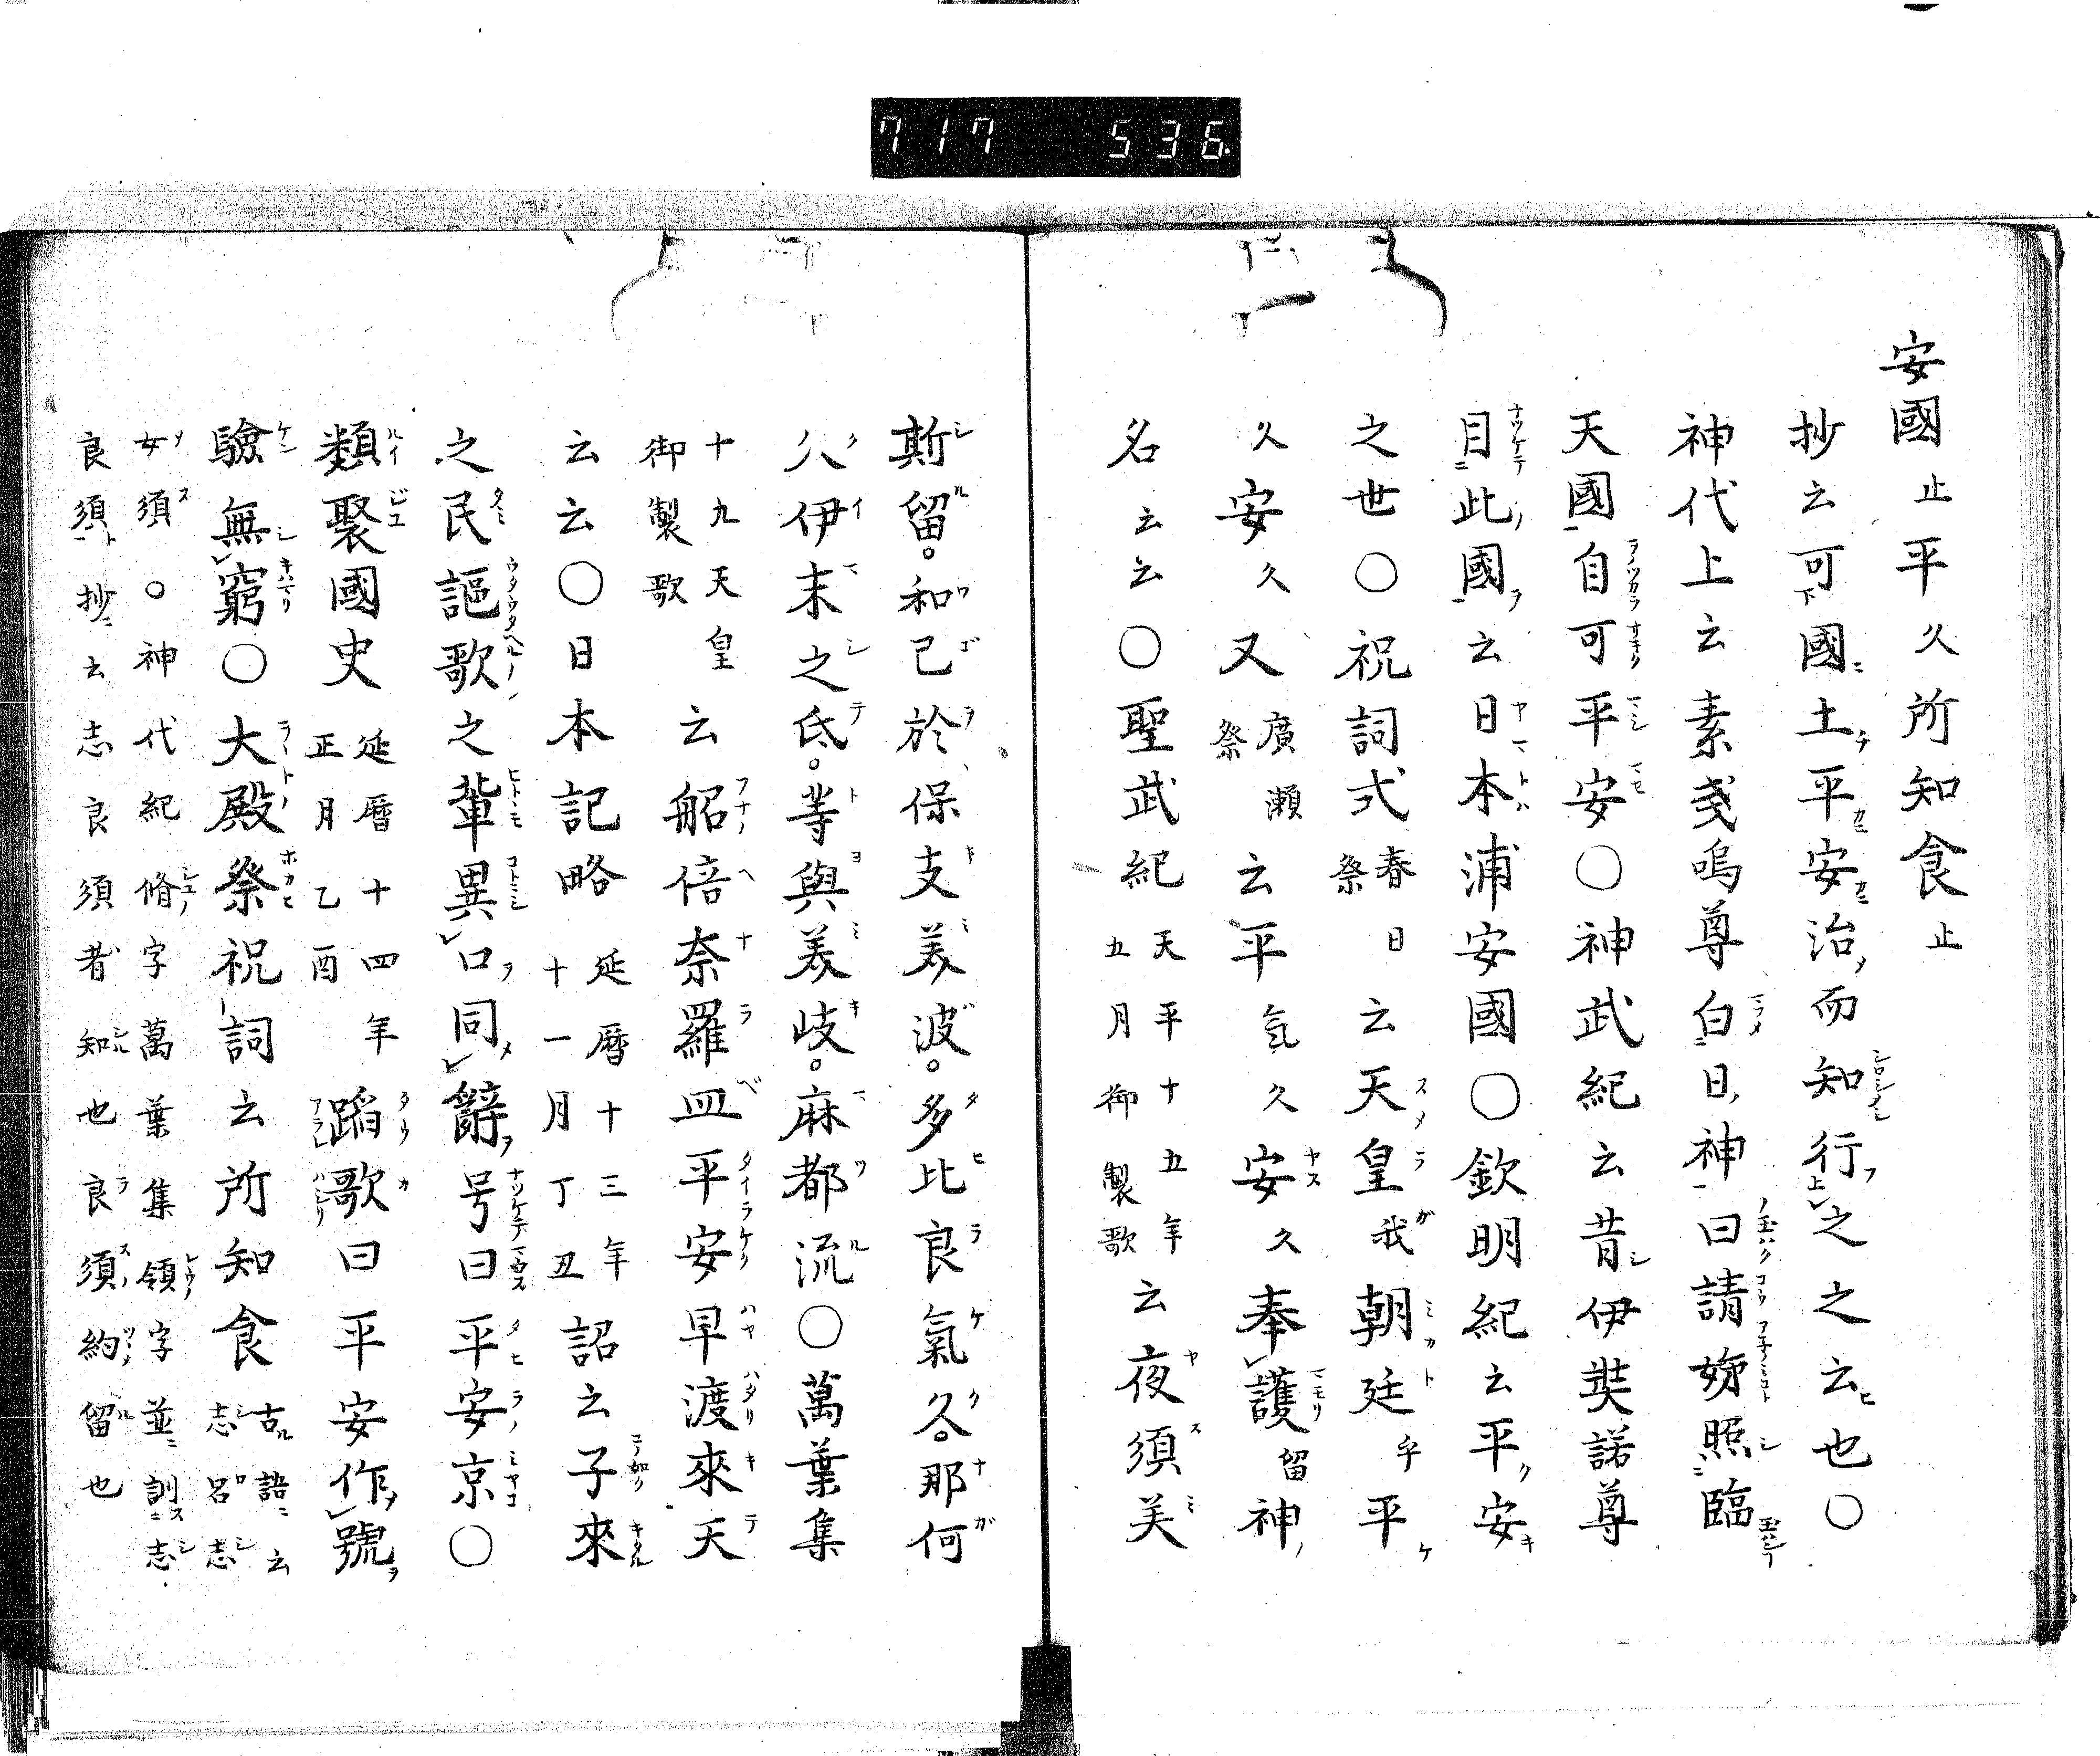 717 536
安國止平久所知食止
抄云可國土平安治而知行之之云也○
神代上云素戔嗚尊白日神曰請姉照臨
天國自可平安○神武紀云昔伊奘諾尊
目此國云日本浦安國○欽明紀云平安
之世○祝詞式春日祭云天皇我朝廷乎平
久安久又廣瀬祭云平氣久安久奉護留神
名云云○聖武紀天平十五年五月御製歌云夜須美
斯留。和己於保支美波。多比良氣久。那何
久伊末之氐。等與美岐。麻都流○萬葉集
十九天皇御製歌云船倍奈羅皿平安早渡來天
云云○日本記略延暦十三年十一月丁丑詔云子來
之民謳歌之輩異口同辭号曰平安京○
類聚國史延暦十四年正月乙酉蹈歌曰平安作號
驗無窮○大殿祭祝詞云所知食古語云志呂志
女須○神代紀脩字萬葉集領字並訓志
良須抄云志良須者知也良須約留也